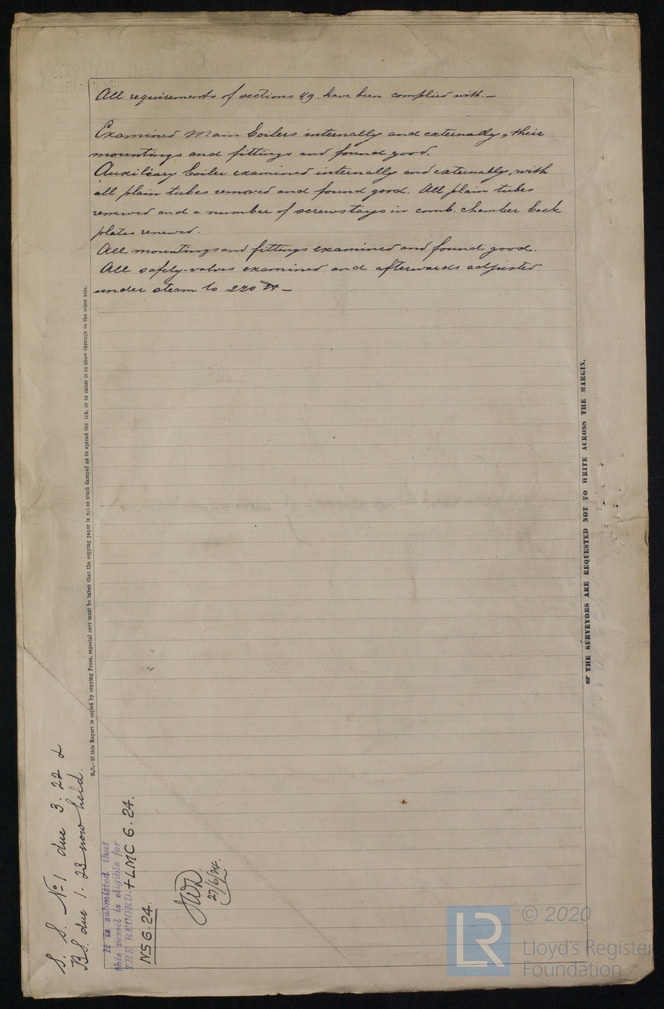 All requirements of sections 49. have been complied with.—
Examined Main boilers internally and externally, their
mountings and fittings and found good.
Auxiliary boiler examined internally and externally, with
all plain tubes removed and found good. All plain tubes
renewed and a number of screwstays in comb. chamber back
plates renewed.
All mountings and fittings examined and found good.
All safety-valves examined and afterwards adjusted
under steam to 220 —
N.B.—If this Report is copied by copying Press, especial care must be taken that the copying paper is not so much damped as to spread the ink, or to cause it to show through to the other side.
THE SURVEYORS ARE REQUESTED NOT TO WRITE ACROSS THE MARGIN.
S. S. No1 due 3.22 &
BS. due 1.23 now held.
It is submitted that
this vessel is eligible for
THE RECORD. + LMC 6.24.
NS 6.24.
27/6/24.
LR
© 2020
Lloyd's Register
Foundation